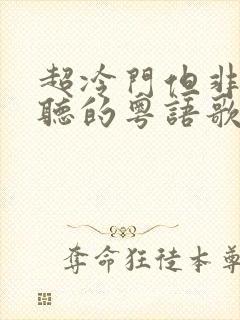 超冷門但非
聽的粵語歌
奪命狂徒本尊